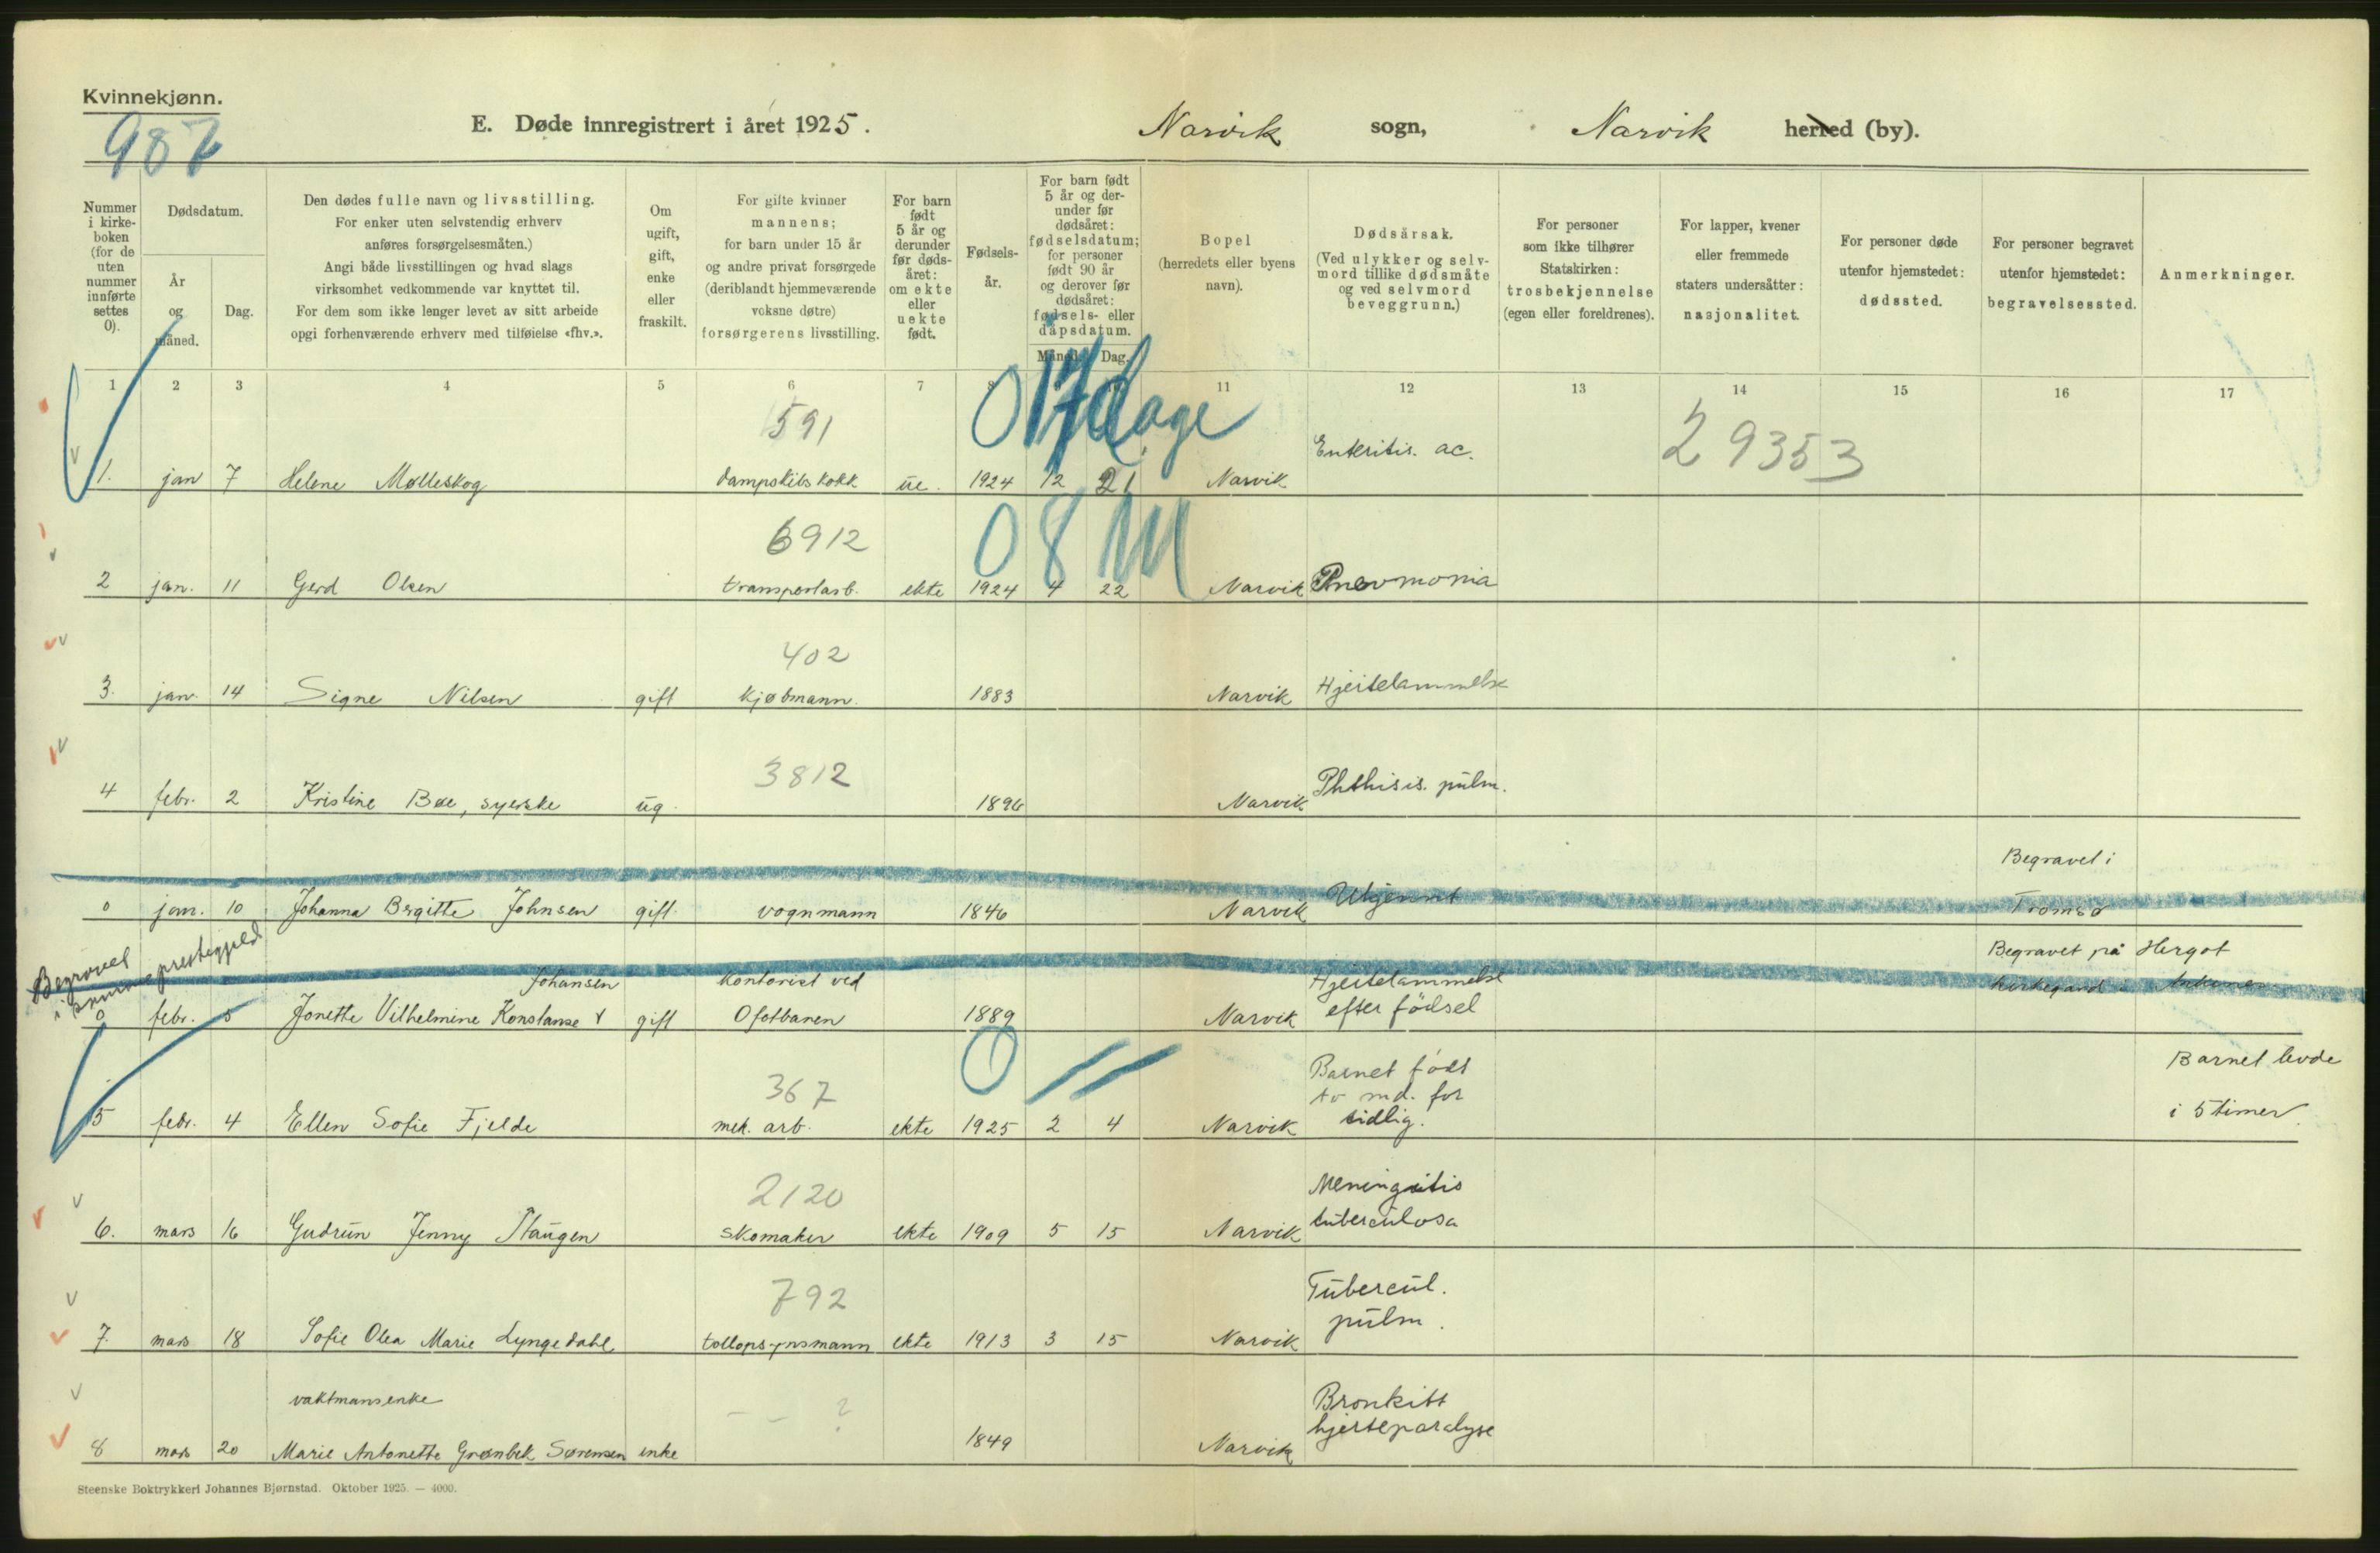 Kvinnekjønn.
987
E. Døde innregistrert i året 1925.
Narvik sogn, Narvik herred (by).
Nummer i kirkeboken (for de uten nummer innførte settes 0).
Dødsdatum.
År og måned.
Dag.
Den dødes fulle navn og livsstilling.
For enker uten selvstendig erhverv
anføres forsørgelsesmåten.)
Angi både livsstillingen og hvad slags
virksomhet vedkommende var knyttet til.
For dem som ikke lenger levet av sitt arbeide
opgi forhenværende erhverv med tilføielse «fhv.».
Om ugift, gift, enke eller fraskilt.
For gifte kvinner
mannens;
for barn under 15 år
og andre privat forsørgede
(deriblandt hjemmeværende
voksne døtre)
forsørgerens livsstilling.
For barn født 5 år og derunder før dødsåret: om ekte eller uekte født.
Fødselsår.
For barn født 5 år og derunder før dødsåret: fødselsdatum; for personer født 90 år og derover før dødsåret: fødsels- eller dåpsdatum.
Måned. Dag.
Bopel
(herredets eller byens
navn).
Dødsårsak.
(Ved ulykker og selvmord tillike dødsmåte
og ved selvmord
beveggrunn.)
For personer
som ikke tilhører
Statskirken:
trosbekjennelse
(egen eller foreldrenes).
For lapper, kvener
eller fremmede
staters undersåtter:
nasjonalitet.
For personer døde
utenfor hjemstedet:
dødssted.
For personer begravet
utenfor hjemstedet:
begravelsessted.
Anmerkninger.
1 2 3 4 5 6 7 8 9 10 11 12 13 14 15 16 17
591 0 17 dage 29353
Enteritis. ac.
1. jan 7 Helene Mølleskog dampskibskokk ue. 1924 12 21 Narvik
6912 0 8 M
2 jan. 11 Gerd Olsen transportarb. ekte 1924 4 22 Narvik Pnevmonia
402
3. jan. 14 Signe Nilsen gift kjøbmann. 1883 Narvik Hjertelammelse
3812
Phthisis. pulm.
4 febr. 2 Kristine Bøe, syerske ug. 1896 Narvik
Begravet i
0 jan. 10 Johanna Brgitte Johnsen gift. vognmann 1846 Narvik Ukjennt Tromsø
Begravet
prestegjeld
Begravet på Hergot
Johansen kontorist ved Hjertelammelse kirkegard i Ankenes
0 febr. 5 Jonette Vilhelmine Konstanse gift Ofotbanen 1889 Narvik efter födsel
0 Barnet födt Barnet levde
367 to md. for
5 febr. 4 Ellen Sofie Fjelde mek. arb. ekte 1925 2 4 Narvik tidlig. i 5 timer.
2120 Meningitis
6. mars 16 Gudrun Jenny Haugen skomaker ekte 1909 5 15 Narvik tuberculosa
792 Tubercul.
7. mars 18 Sofie Olea Marie Lyngedahl tollopsynsmann ekte 1913 3 15 Narvik pulm.
vaktmansenke – – ? Bronkitt
8 mars 20 Marie Antonette Grønbek Sørensen enke 1849 Narvik hjerteparalyse
Steenske Boktrykkeri Johannes Bjørnstad. Oktober 1925. — 4000.